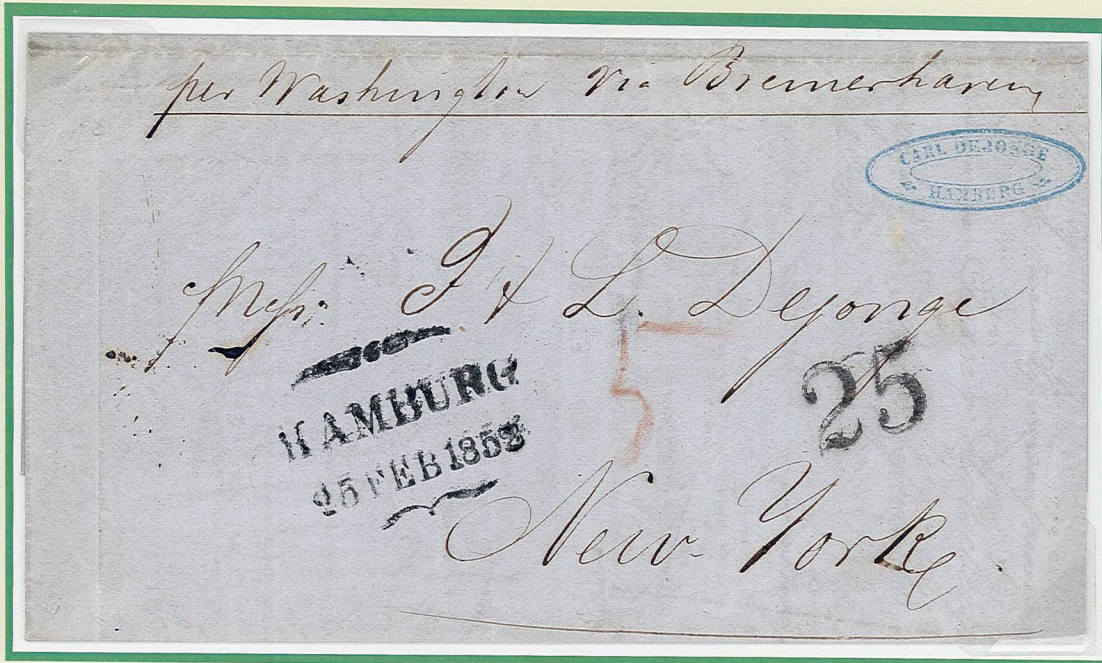 per Washington via Bremerhaven
CARL DEJONGE
HAMBURG
Messrs. J & L. Dejonge
5
25
HAMBURG
25 FEB 1853
New York.